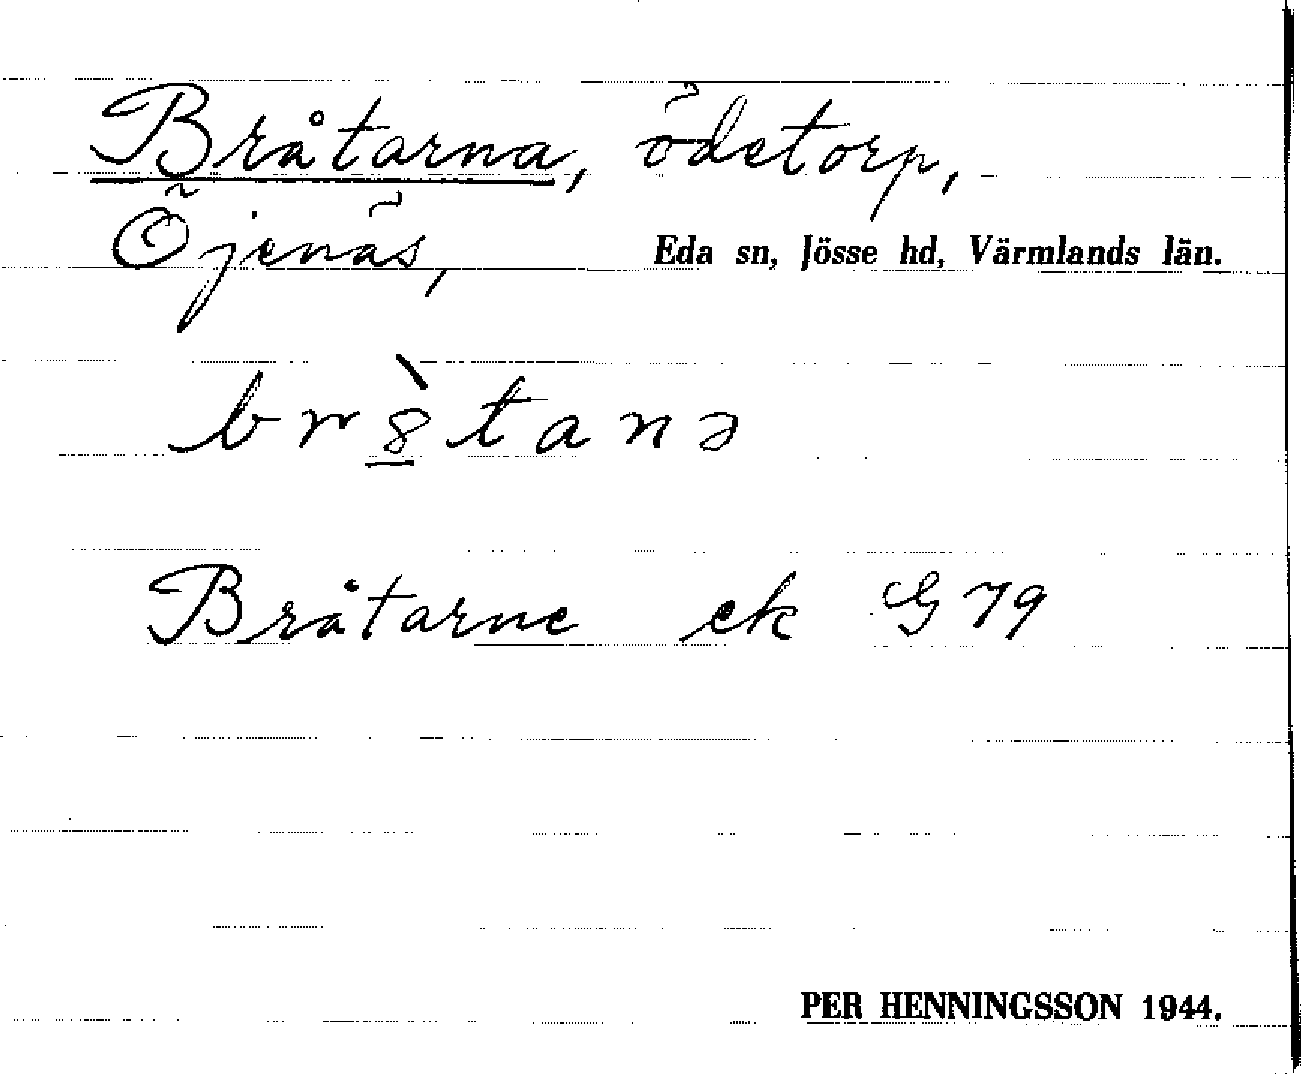 Bråtarna, ödetorp,
Öjenäs, Eda sn, Jösse hd, Värmlands län.
br8̲̀tanə
Bråtarne ek G 79
PER HENNINGSSON 1944.